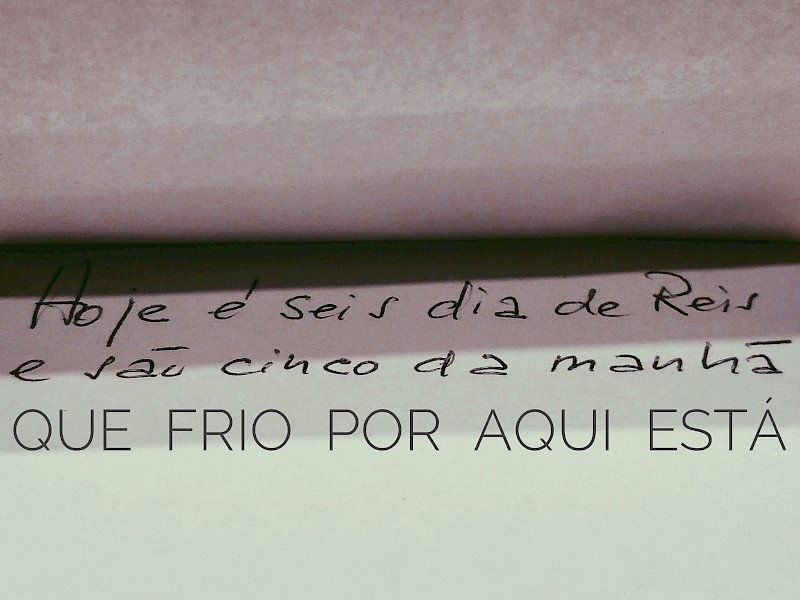 Hoje é seis dia de Reis
e são cinco da manhã
QUE FRIO POR AQUI ESTÁ